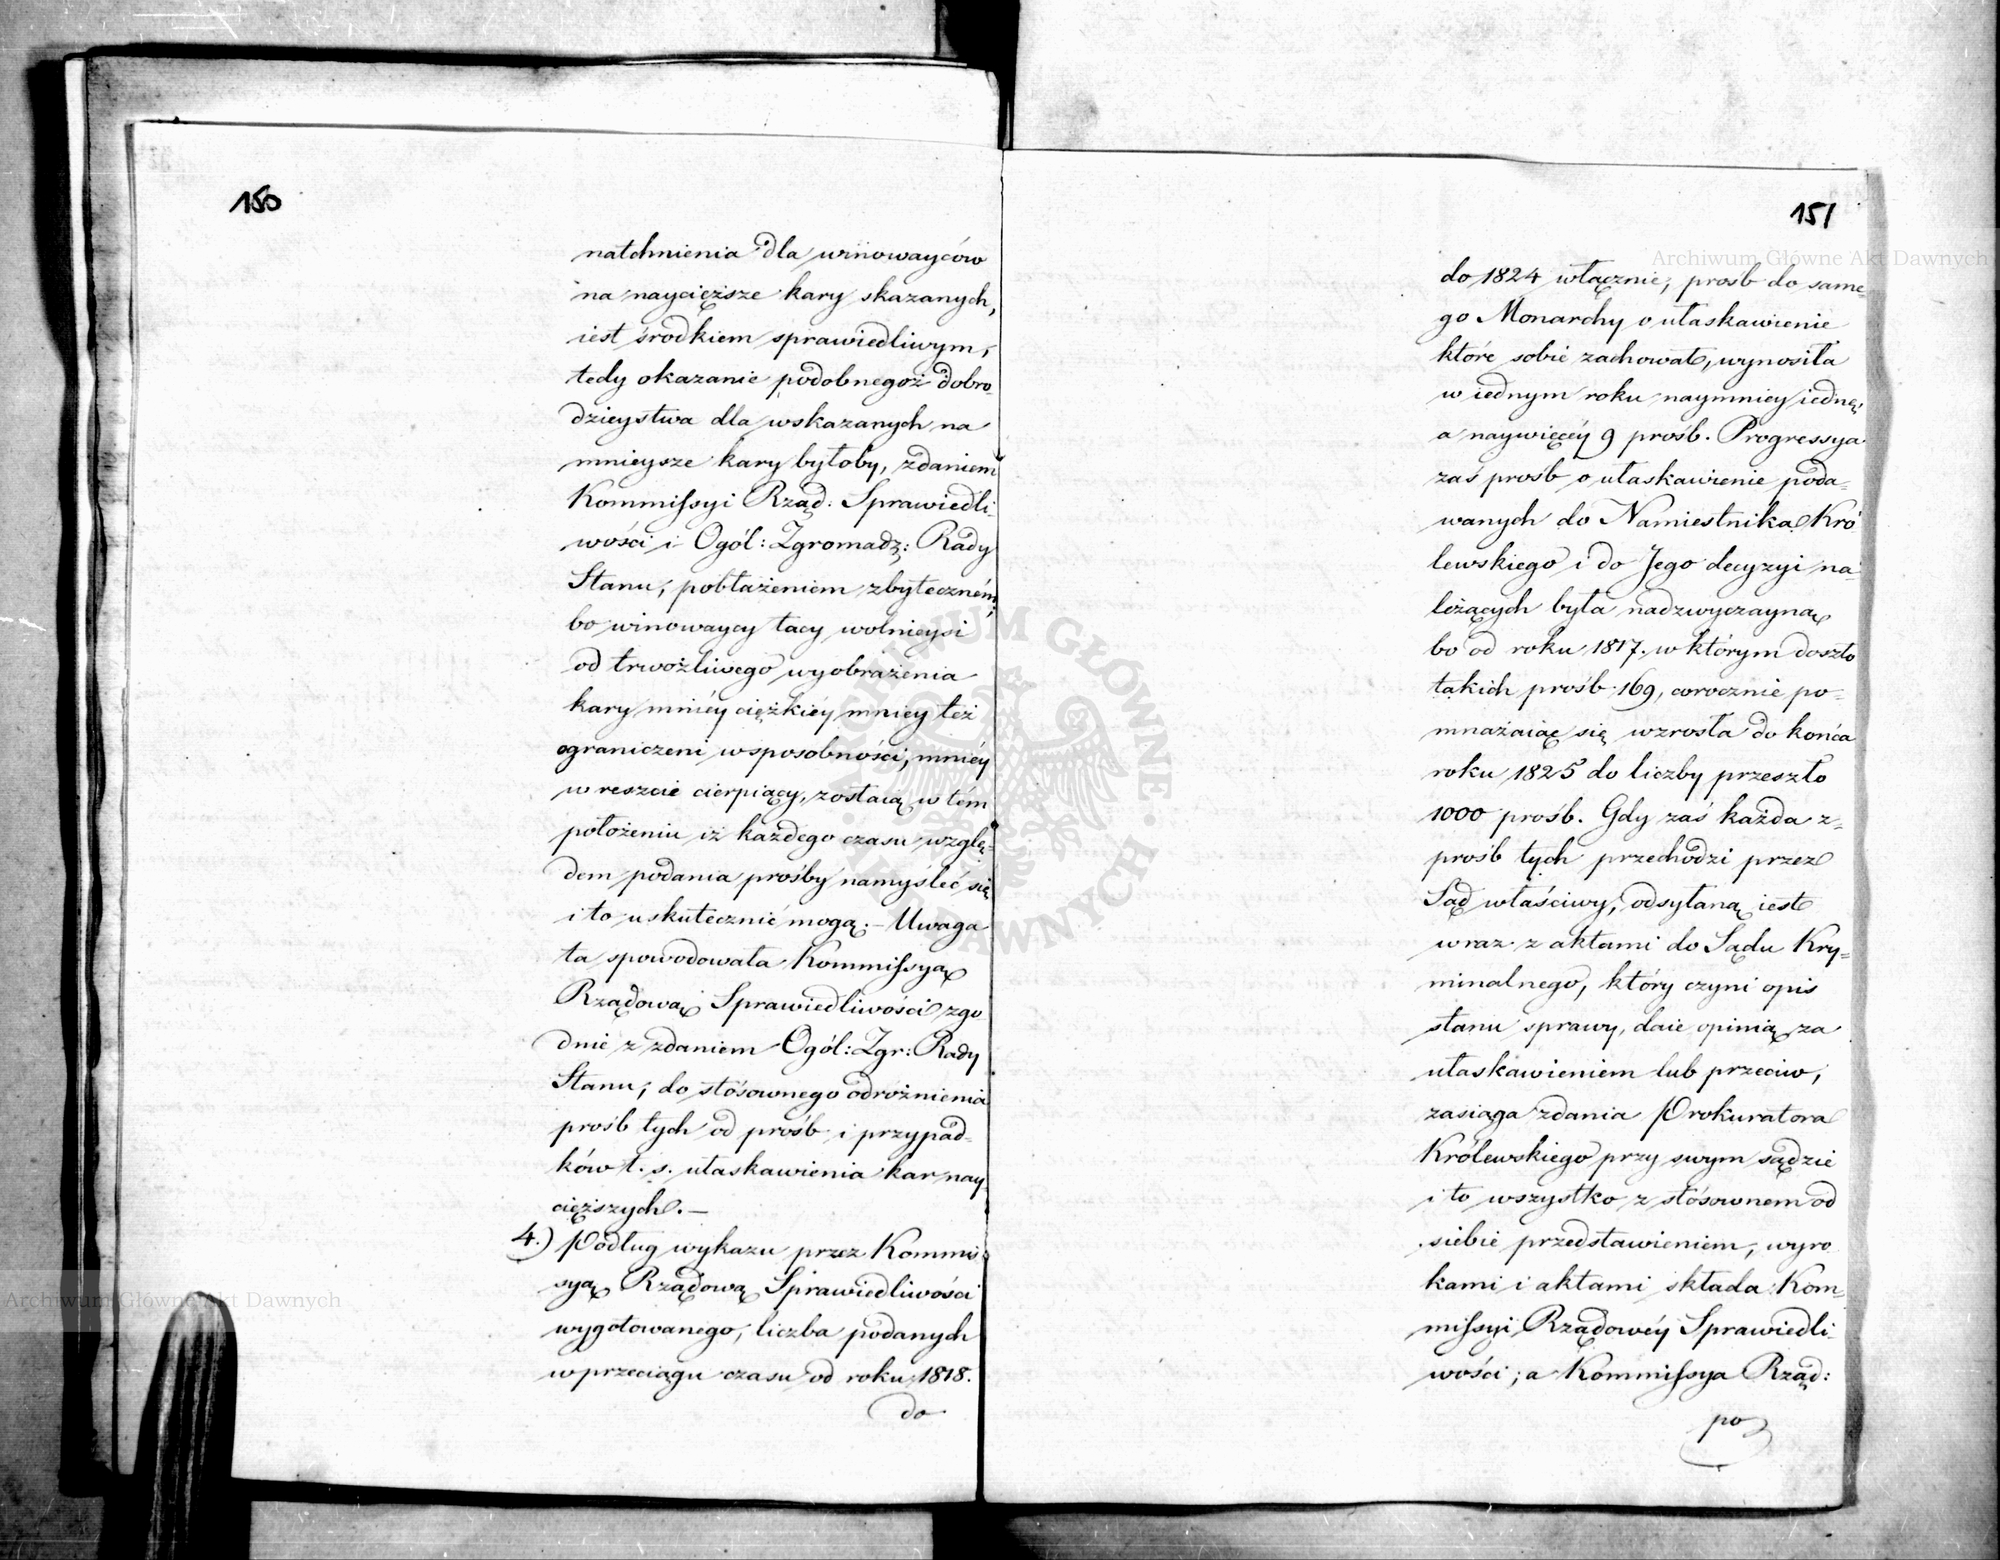 150
natchnienia dla winowayców
na naycięższe kary skazanych,
iest środkiem sprawiedliwym,
tedy okazanie podobnegoż dobro-
dzieystwa dla wskazanych na
mnieysze kary byłoby, zdaniem
Kommissyi Rząd: Sprawiedli-
wości i Ogól: Zgromadz: Rady
Stanu, pobłażeniem zbyteczném,
bo winowaycy tacy wolnieysi
od trwożliwego wyobrażenia
kary mniéy ciężkiéy mniey też
ograniczeni w sposobności, mniéy
w reszcie cierpiący, zostaią w tém
położeniu iż każdego czasu wzglę-
dem podania prośby namyśleć się
i to uskutecznić mogą. – Uwaga
ta spowodowała Kommissyą
Rządową Sprawiedliwości zgo-
dnie z zdaniem Ogól: Zgr: Rady
Stanu, do stósownego odróżnienia
prośb tych od prośb i przypad-
ków t. s. ułaskawienia kar nay-
cięższych. –
4.) Podług wykazu przez Kommis-
syą Rządową Sprawiedliwości
wygotowanego, liczba podanych
w przeciągu czasu od roku 1818.
do
151
do 1824 włącznie, prosb do same-
go Monarchy o ułaskawienie
które sobie zachował, wynosiła
w iednym roku naymniey iednę,
a naywięcéy 9 prośb. Progressya
zaś prosb o ułaskawienie poda-
wanych do Namiestnika Kró-
lewskiego i do Jego decyzyi na-
leżących była nadzwyczayną
bo od roku 1817. w którym doszło
takich prośb 169, corocznie po-
mnażaiąc się wzrosła do końca
roku 1825 do liczby przeszło
1000 prośb. Gdy zaś każda z-
prośb tych przechodzi przez
Sąd właściwy, odsyłaną iest
wraz z aktami do Sądu Kry-
minalnego, który czyni opis
stanu sprawy, daie opinią za
ułaskawieniem lub przeciw,
zasiąga zdania Prokuratora
Królewskiego przy swym sądzie
i to wszystko z stósownem od
siebie przedstawieniem, wyro-
kami i aktami składa Kom-
missyi Rządowéy Sprawiedli-
wości; a Kommissya Rząd:
po
Archiwum Główne Akt Dawnych
Archiwum Główne Akt Dawnych
ARCHIWUM GŁÓWNE
AKT DAWNYCH